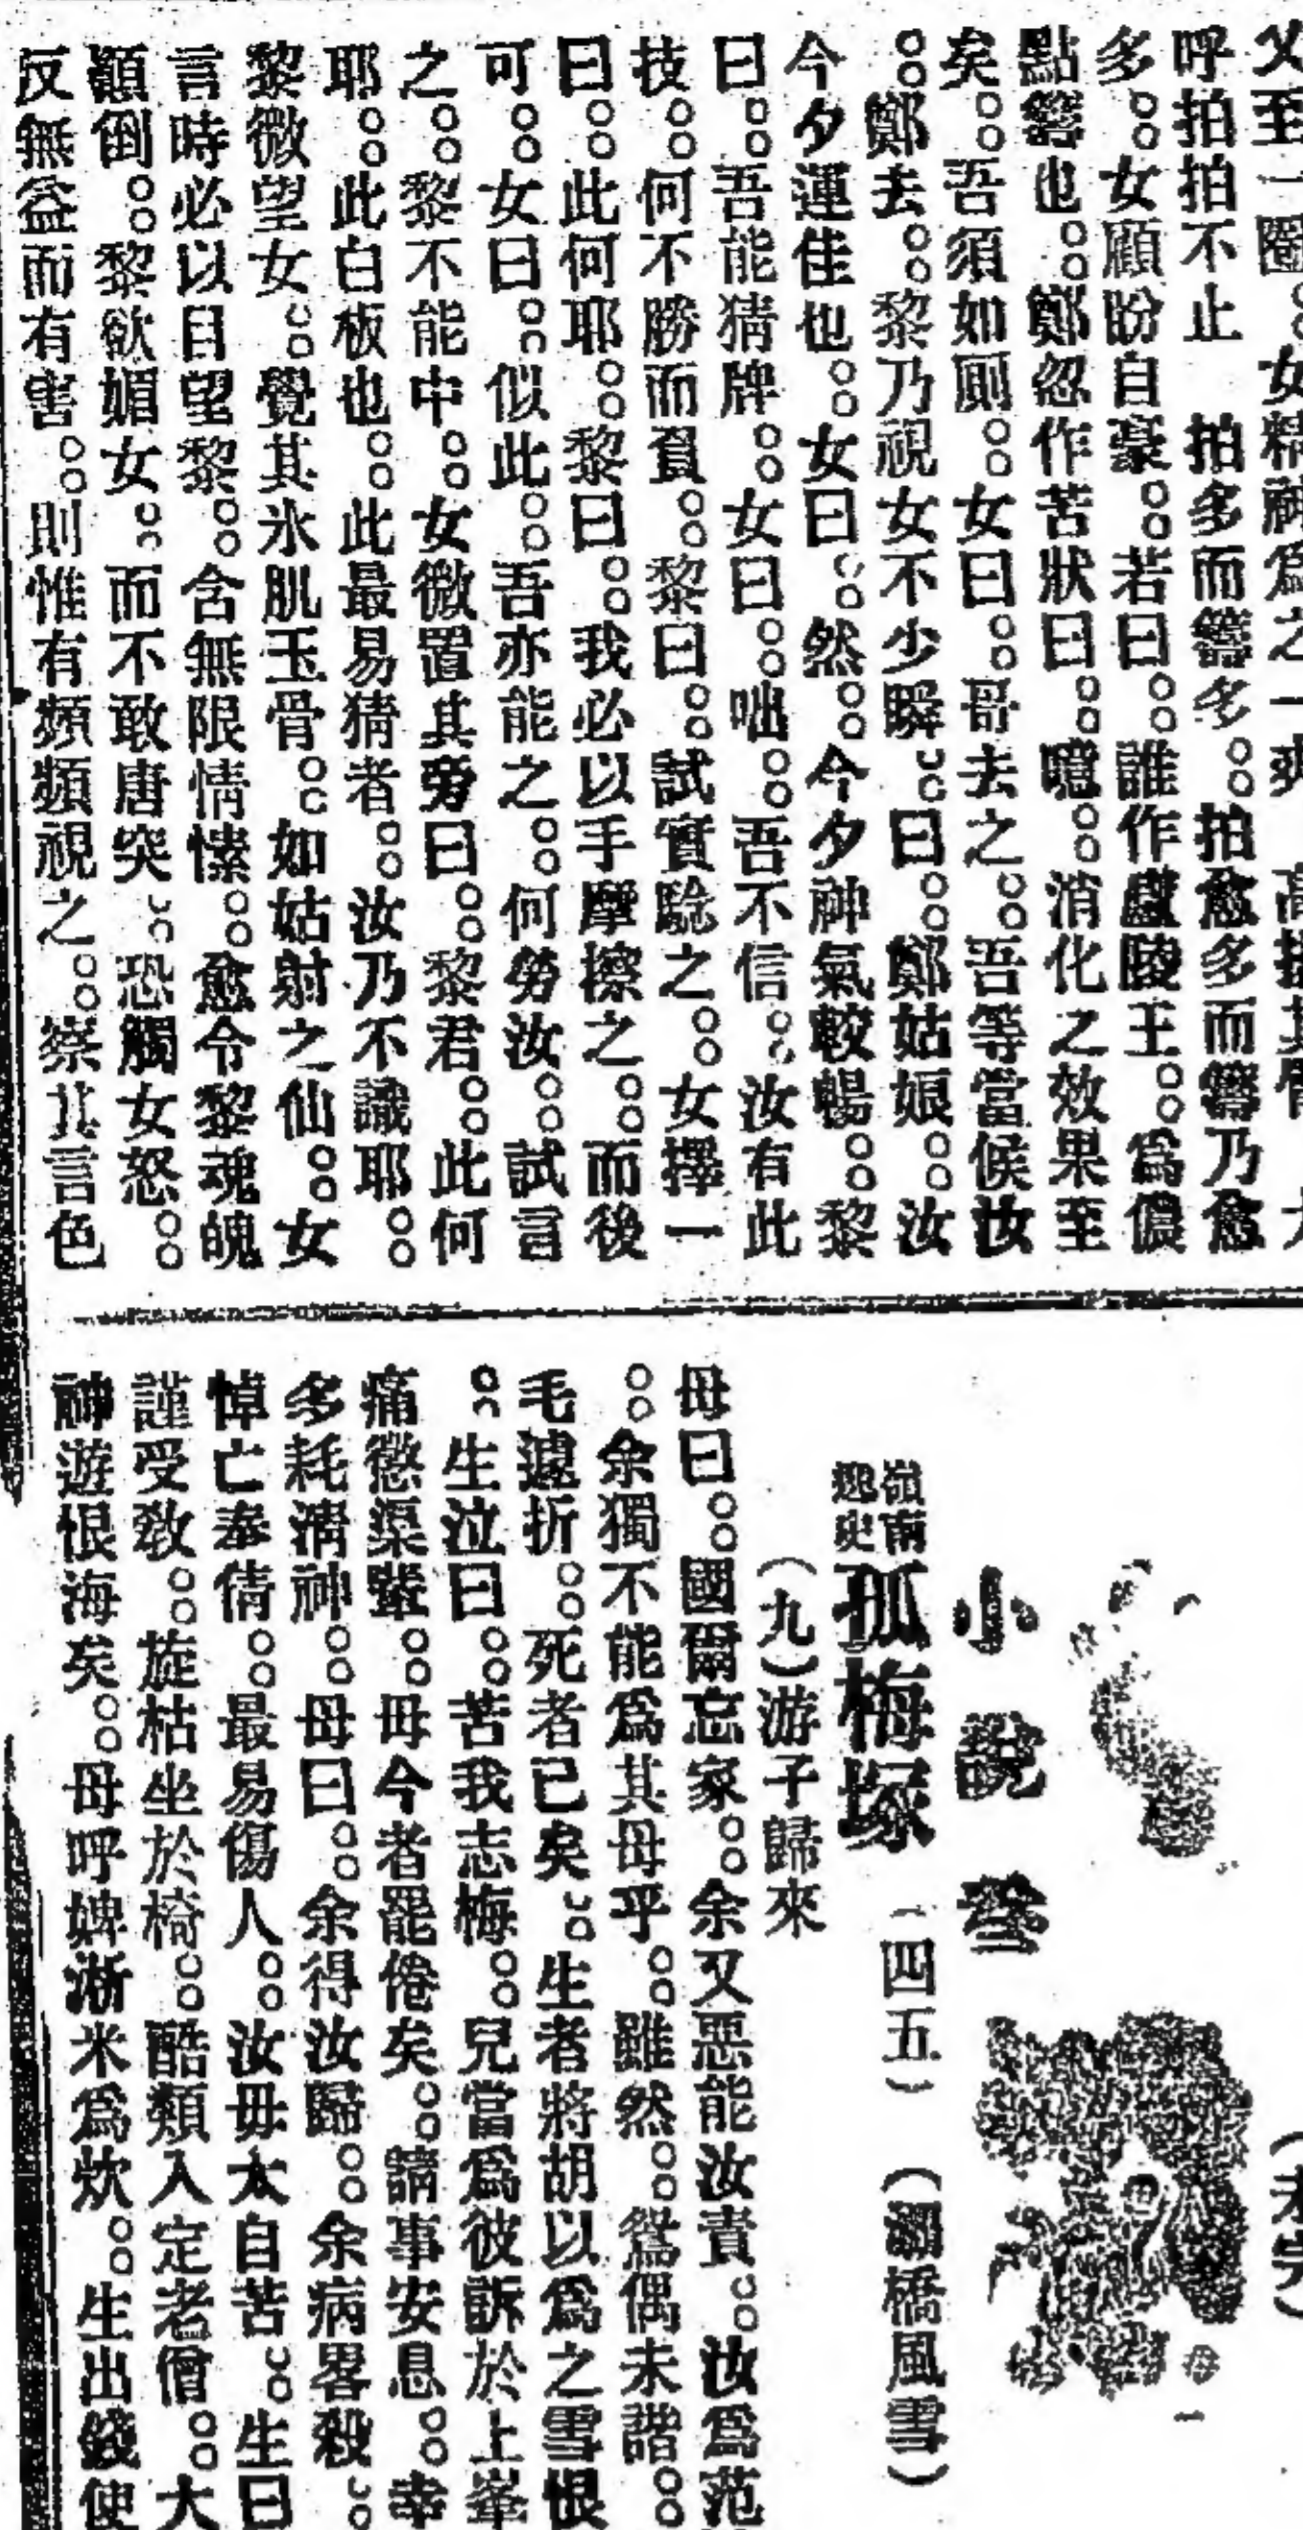 父至一圈。。女精神爲之一爽
呼拍拍不止　拍多而籌多。。拍愈多而籌乃愈
多。。女顧盼自豪。。若曰。。誰作盧陵王。。爲儂
點籌也。。鄭忽作苦狀曰。。噫。。消化之效果至
矣。。吾須如厠。。女曰。。哥去之。。吾等當候汝
。。鄭去。。黎乃視女不少瞬。。曰。。鄭姑娘。。汝
今夕運佳也。。女曰。。然。。今夕神氣較暢。。黎
曰。。吾能猜牌。。女曰。。咄。。吾不信。。汝有此
技。。何不勝而負。。黎曰。。試實騐之。。女擇一
曰。。此何耶。。黎曰。。我必以手摩擦之。。而後
可。。女曰。。似此。。吾亦能之。。何勞汝。。試言
之。。黎不能中。。女微置其旁曰。。黎君。。此何
耶。。此白板也。。此最易猜者。。汝乃不識耶。。
黎微望女。。覺其氷肌玉骨。。如姑射之仙。。女
言時必以目望黎。。含無限情愫。。愈令黎魂魄
顚倒。。黎欲媚女。。而不敢唐突。。恐觸女怒。。
反無益而有害。。則惟有頻頻視之。。察其言色
（未完）
小說
嶺南
孤梅塚　（四五）　（灞橋風雪）
（九）游子歸來
母曰。。國爾忘家。。余又惡能汝責。。汝爲范
。。余獨不能爲其母乎。。雖然。。鴛偶未諧。。
毛遽折。。死者已矣。。生者將胡以爲之雪恨
。。生泣曰。。苦我志梅。。兒當爲彼訴於上峯
痛懲渠輩。。母今者罷倦矣。。請事安息。。幸
多耗淸神。。母曰。。余得汝歸。。余病畧殺。。
悼亡奉倩。。最易傷人。。汝毋太自苦。。生曰
謹受敎。。旋枯坐於椅。。酷類入定老僧。。大
神遊恨海矣。。母呼婢淅米爲炊。。生出錢使